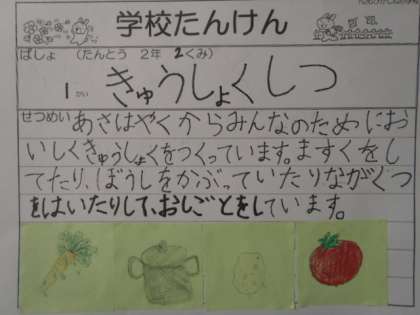 学校たんけん
ばしょ (たんとう 2年 2くみ)
1かい きゅうしょくしつ
せつめい あさはやくからみんなのためにお
いしくきゅうしょくをつくっています。ますくをし
てたり、ぼうしをかぶっていたりながぐつ
をはいたりして、おしごとをしています。